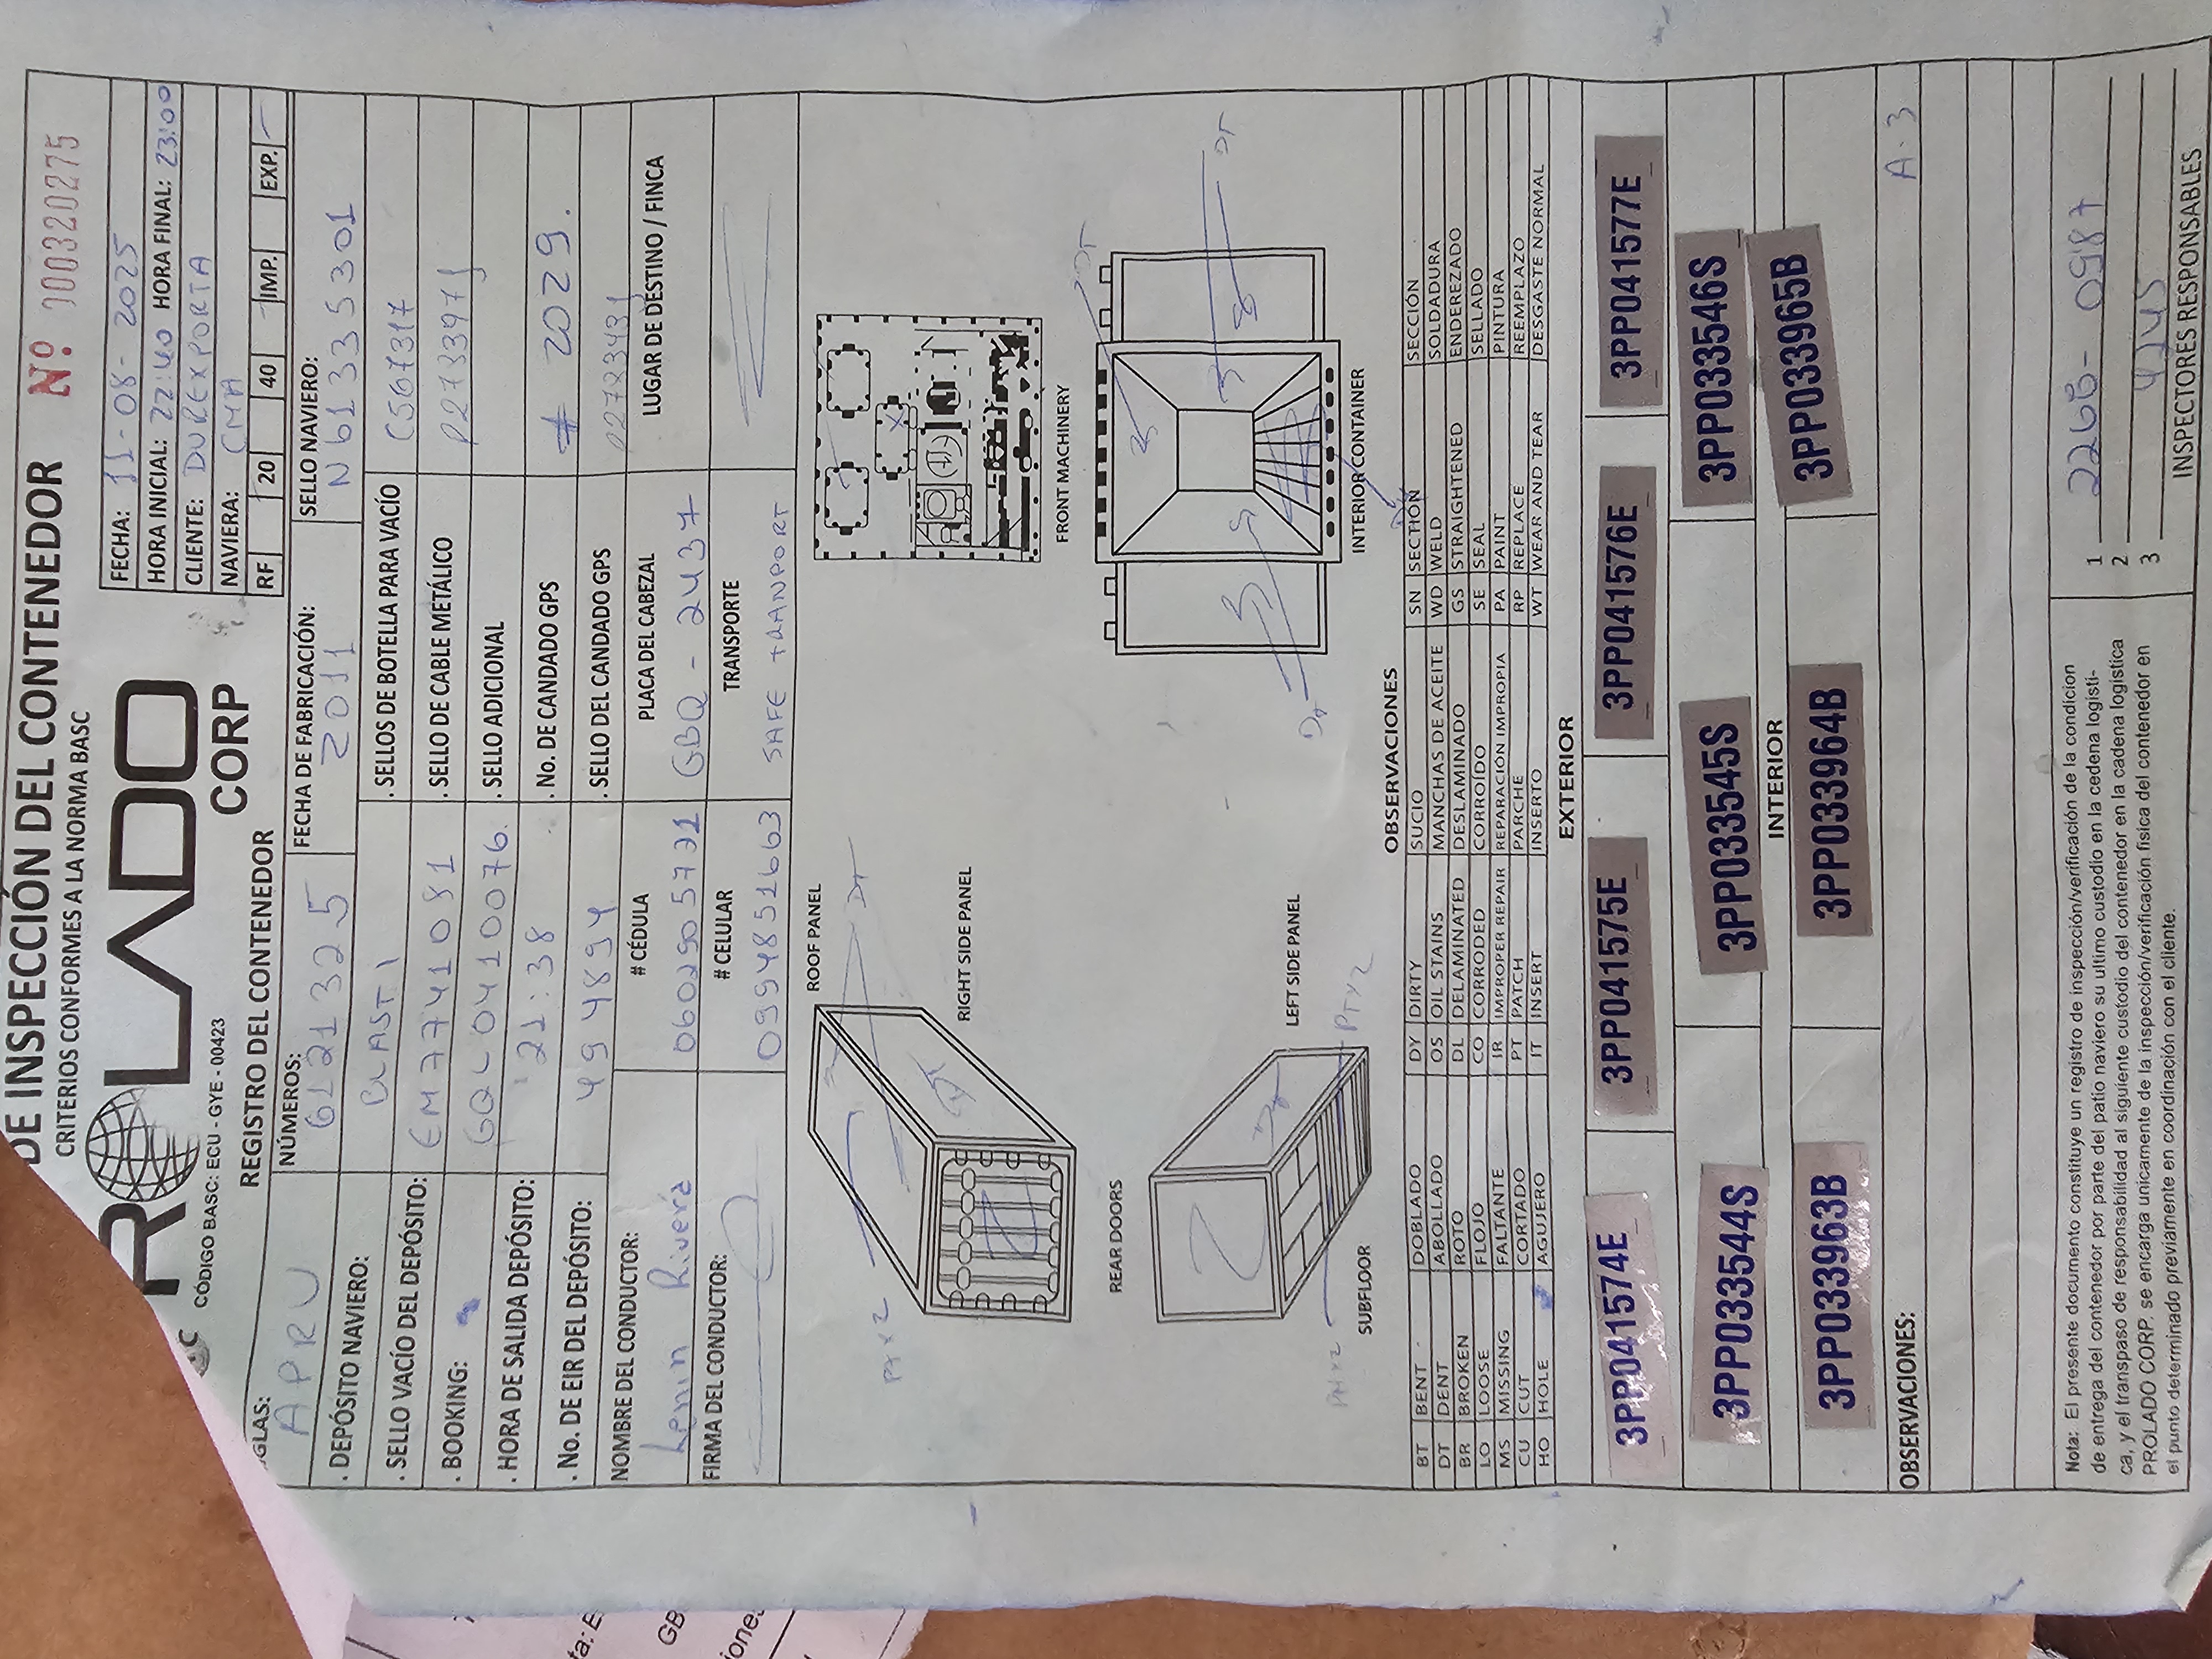 DE INSPECCIÓN DEL CONTENEDOR Nº 000320275
CRITERIOS CONFORMES A LA NORMA BASC
ROLADO
CORP
CÓDIGO BASC: ECU - GYE - 00423
FECHA: 11-08-2025
HORA INICIAL: 22:40 HORA FINAL: 23:00
CLIENTE: DUREXPORTA
NAVIERA: CMA
RF 20 40 IMP. EXP.
REGISTRO DEL CONTENEDOR
GLAS: APRU
NÚMEROS: 6121325
FECHA DE FABRICACIÓN: 2011
SELLO NAVIERO: N61335301
. DEPÓSITO NAVIERO: BLASTI
. SELLOS DE BOTELLA PARA VACÍO C567317
. SELLO VACÍO DEL DEPÓSITO: EM7741081
. SELLO DE CABLE METÁLICO
. BOOKING: GQL0410076.
. SELLO ADICIONAL
. HORA DE SALIDA DEPÓSITO: 21:38
. No. DE CANDADO GPS # 2029.
. No. DE EIR DEL DEPÓSITO: 494894
. SELLO DEL CANDADO GPS
NOMBRE DEL CONDUCTOR: Lenin Rivera
# CÉDULA
PLACA DEL CABEZAL GBQ - 2437
LUGAR DE DESTINO / FINCA
FIRMA DEL CONDUCTOR:
# CELULAR 0994851663
TRANSPORTE SAFE TRANPORT
ROOF PANEL
PTX2
DT
DT
RIGHT SIDE PANEL
REAR DOORS
FRONT MACHINERY
DT
DT
DT
LEFT SIDE PANEL
PTX2
SUBFLOOR
INTERIOR CONTAINER
OBSERVACIONES
BT BENT DOBLADO DY DIRTY SUCIO SN SECTION SECCIÓN
DT DENT ABOLLADO OS OIL STAINS MANCHAS DE ACEITE WD WELD SOLDADURA
BR BROKEN ROTO DL DELAMINATED DESLAMINADO GS STRAIGHTENED ENDEREZADO
LO LOOSE FLOJO CO CORRODED CORROÍDO SE SEAL SELLADO
MS MISSING FALTANTE IR IMPROPER REPAIR REPARACIÓN IMPROPIA PA PAINT PINTURA
CU CUT CORTADO PT PATCH PARCHE RP REPLACE REEMPLAZO
HO HOLE AGUJERO IT INSERT INSERTO WT WEAR AND TEAR DESGASTE NORMAL
EXTERIOR
3PP041574E 3PP041575E 3PP041576E 3PP041577E
3PP033544S 3PP033545S 3PP033546S
INTERIOR
3PP033963B 3PP033964B 3PP033965B
OBSERVACIONES: A-3
Nota: El presente documento constituye un registro de inspección/verificación de la condicion
de entrega del contenedor por parte del patio naviero su ultimo custodio en la cedena logisti-
ca, y el transpaso de responsabilidad al siguiente custodio del contenedor en la cadena logistica
PROLADO CORP. se encarga unicamente de la inspección/verificación fisica del contenedor en
el punto determinado previamente en coordinación con el cliente.
1 2266- 0987
2
3 4245
INSPECTORES RESPONSABLES